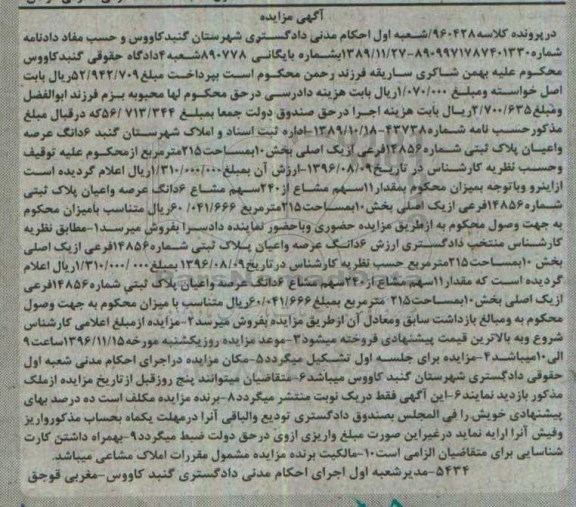 آگهی مزایده
درپرونده کلاسه۹۶۰۴۲۸/شعبه اول احکام مدنی دادگستری شهرستان گنبدکاووس و حسب مفاد دادنامه
شماره۸۹۰۹۹۷۱۷۸۷۴۰۱۳۳۰-۱۳۸۹/۱۱/۲۷بشماره بایگانی ۸۹۰۷۷۸شعبه۴دادگاه حقوقی گنبدکاووس
محکوم علیه بهمن شاکری ساریقه فرزند رحمن محکوم است بپرداخت مبلغ۵۲/۹۴۲/۷۰۹ریال بابت
اصل خواسته ومبلغ ۱/۰۷۰/۰۰۰ریال بابت هزینه دادرسی درحق محکوم لها محبوبه بزم فرزند ابوالفضل
ومبلغ۲/۷۰۰/۶۳۵ریال بابت هزینه اجرا درحق صندوق دولت جمعا بمبلغ ۵۶/۷۱۳/۳۴۴که درقبال مبلغ
مذکورحسب نامه شماره۴۳۷۳۸-۱۳۸۹/۱۰/۱۸-اداره ثبت اسناد و املاک شهرستان گنبد ۶دانگ عرصه
واعیان پلاک ثبتی شماره۱۴۸۵۶فرعی ازیک اصلی بخش۱۰بمساحت۲۱۵مترمربع ازمحکوم علیه توقیف
وحسب نظریه کارشناس در تاریخ۱۳۹۶/۰۸/۰۹-ارزش آن بمبلغ۱/۳۱۰/۰۰۰/۰۰۰ریال اعلام گردیده است
ازاینرو وباتوجه بمیزان محکوم بمقدار۱۱سهم مشاع از۲۴۰سهم مشاع ۶دانگ عرصه واعیان پلاک ثبتی
شماره۱۴۸۵۶فرعی ازیک اصلی بخش۱۰بمساحت۲۱۵مترمربع ۶۰/۰۴۱/۶۶۶ریال متناسب بامیزان محکوم
به جهت وصول محکوم به ازطریق مزایده حضوری وباحضور نماینده دادسرا بفروش میرسد۱-مطابق نظریه
کارشناس منتخب دادگستری ارزش ۶دانگ عرصه واعیان پلاک ثبتی شماره۱۴۸۵۶فرعی ازیک اصلی
بخش ۱۰بمساحت۲۱۵مترمربع حسب نظریه کارشناس درتاریخ۱۳۹۶/۰۸/۰۹ بمبلغ۱/۳۱۰/۰۰۰/۰۰۰ریال اعلام
گردیده است که مقدار۱۱سهم مشاع از۲۴۰سهم مشاع ۶دانگ عرصه واعیان پلاک ثبتی شماره۱۴۸۵۶فرعی
ازیک اصلی بخش۱۰بمساحت۲۱۵ مترمربع بمبلغ۶۰/۰۴۱/۶۶۶ریال متناسب با میزان محکوم به جهت وصول
محکوم به ومبالغ بازداشت سابق ومعادل آن ازطریق مزایده بفروش میرسد۲-مزایده ازمبلغ اعلامی کارشناس
شروع وبه بالاترین قیمت پیشنهادی فروخته میشود۳-موعد مزایده روزیکشنبه مورخه۱۳۹۶/۱۱/۱۵ساعت۹
الی۱۰میباشد۴-مزایده برای جلسه اول تشکیل میگردد۵-مکان مزایده دراجرای احکام مدنی شعبه اول
حقوقی دادگستری شهرستان گنبد کاووس میباشد۶-متقاضیان میتوانند پنج روزقبل ازتاریخ مزایده ازملک
مذکور بازدید نمایند۶-این آگهی فقط دریک نوبت منتشر میگردد۸-برنده مزایده مکلف است ده درصد بهای
پیشنهادی خویش را فی المجلس بصندوق دادگستری تودیع والباقی آنرا درمهلت یکماه بحساب مذکورواریز
وفیش آنرا ارایه نماید درغیراین صورت مبلغ واریزی ازوی درحق دولت ضبط میگردد۹-بهمراه داشتن کارت
شناسایی برای متقاضیان الزامی است۱۰-مالکیت برنده مزایده مشمول مقررات املاک مشاعی میباشد.
۵۴۳۴-مدیرشعبه اول اجرای احکام مدنی دادگستری گنبد کاووس-مغربی قوجق